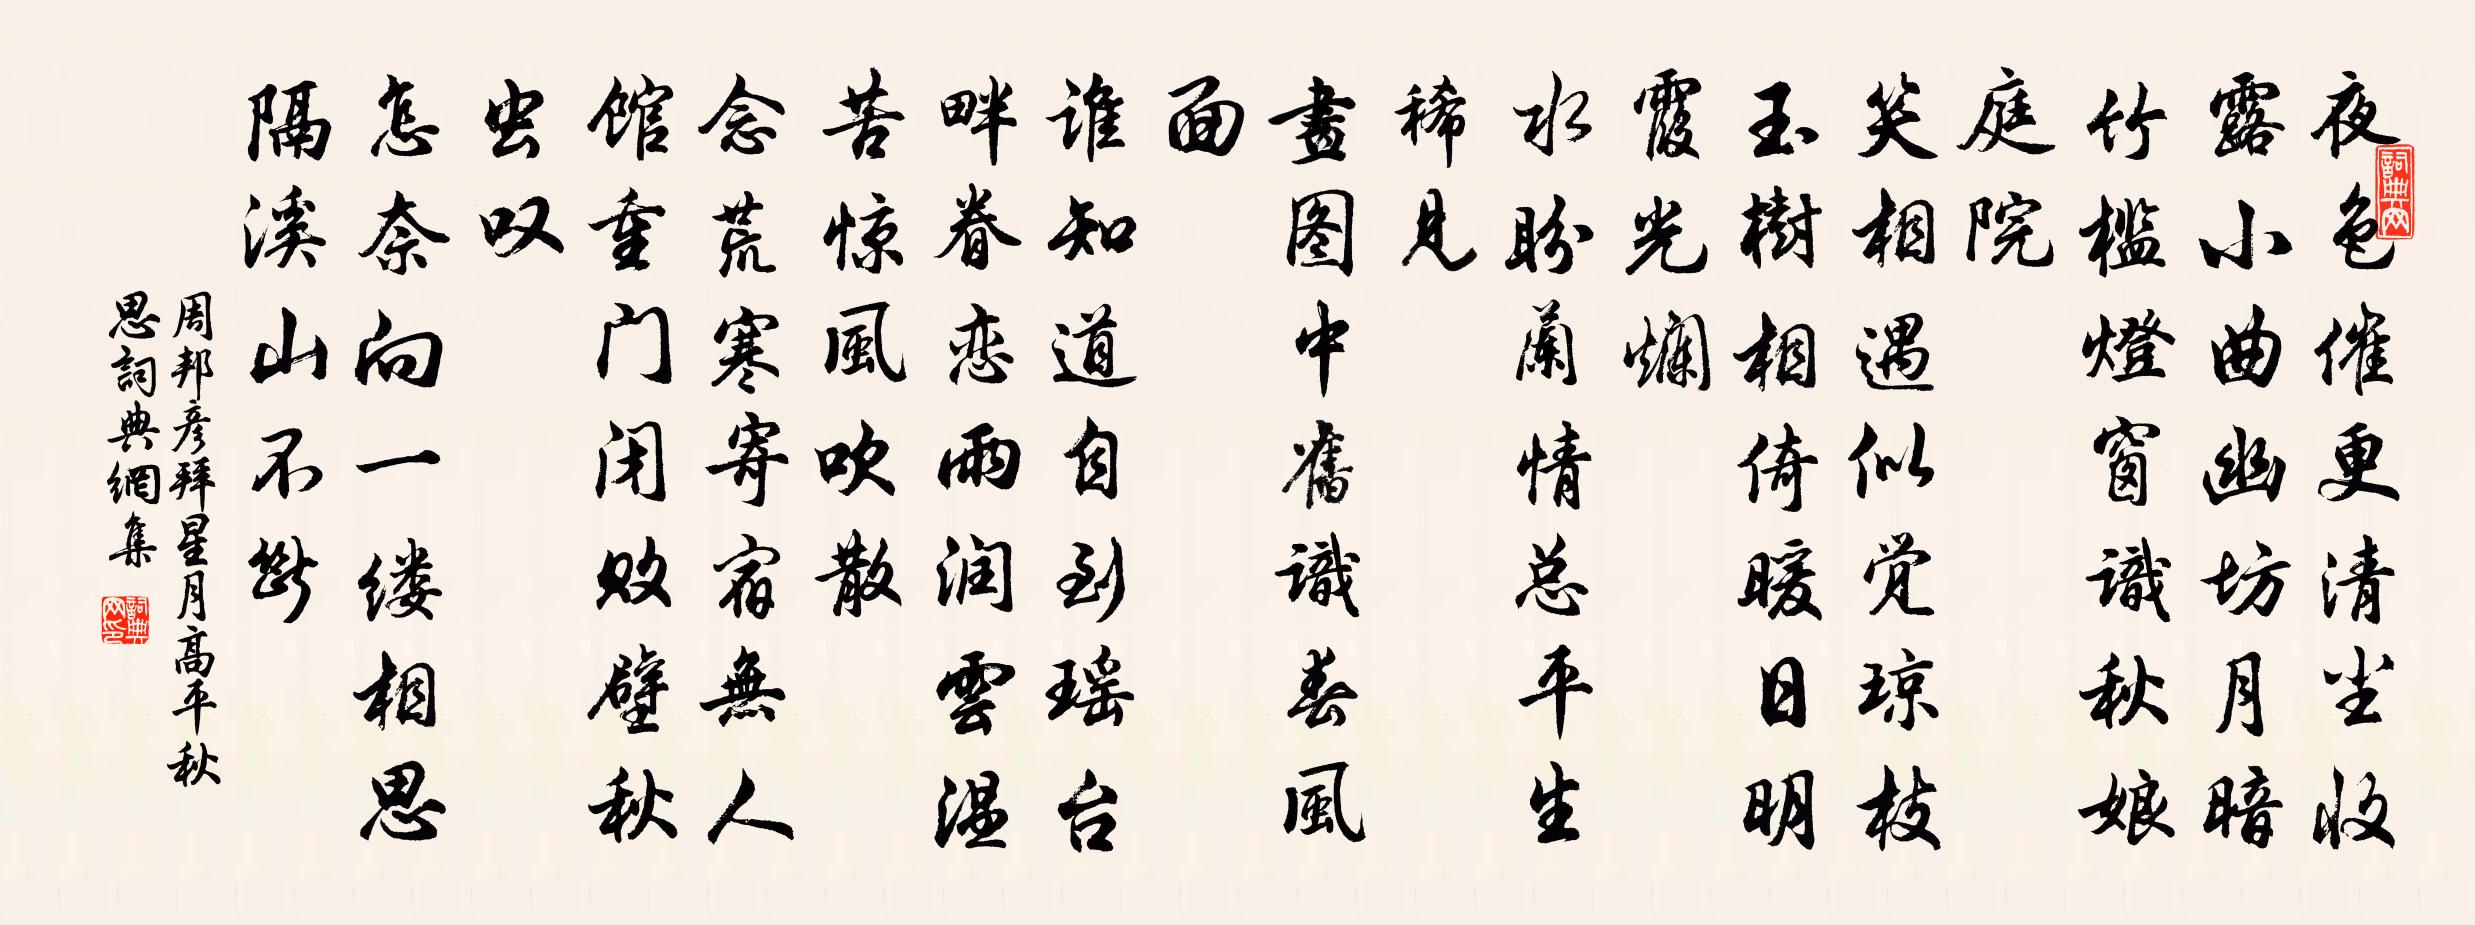 夜色催更清尘收
露小曲幽坊月暗
竹槛燈窗識秋娘
庭院
笑相遇似觉琼枝
玉樹相倚暖日明
霞光爛
水盼蘭情总平生
稀見
畫图中舊識春風
面
谁知道自到瑶台
畔眷恋雨润雲温
苦惊風吹散
念荒寒寄宿無人
馆重门闭败壁秋
虫叹
怎奈向一缕相思
隔溪山不斷
周邦彦拜星月高平秋
思詞典網集
詞典网
詞典网印